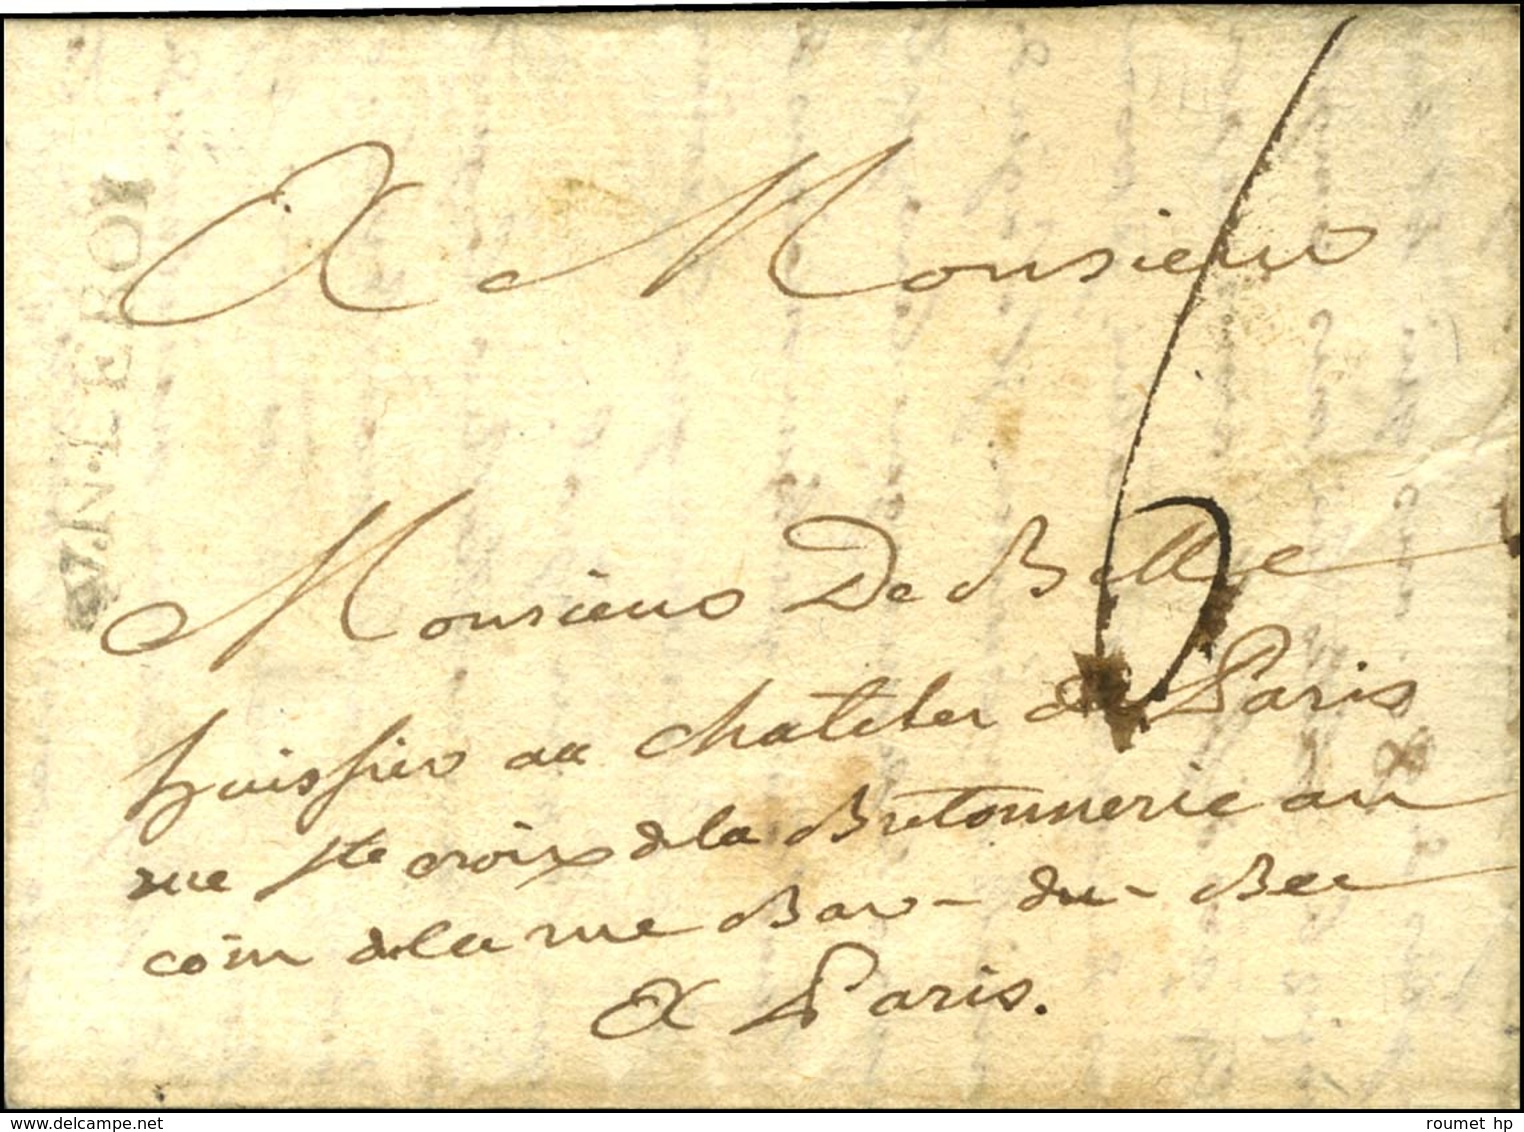 A Monsieur
Monsieur De Bellye
huissier au chatelet de Paris
rue ste croix de la Bretonnerie au
coin de la rue Bar-du-Bec
A Paris.
6
N.LEROI
www.delcampe.net
roumet hp